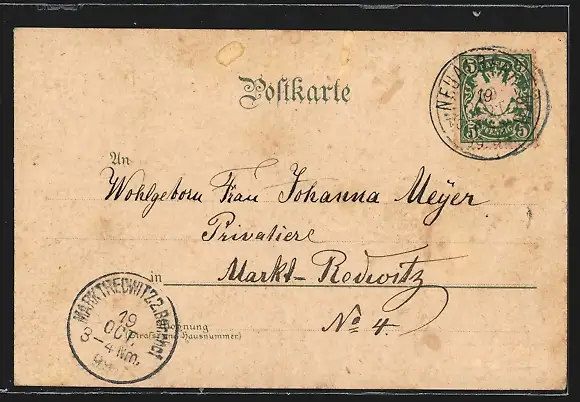 Postkarte
5 5
19
5 PFENNIG 5
An
Wohlgeborn Frau Johanna Meyer
Privatiere
in Markt-Redwitz
Wohnung
(Straße und Hausnummer)
No 4.
MARKTREDWITZ 2. Bahnhof
19
OCT.
3-4 Nm.
99